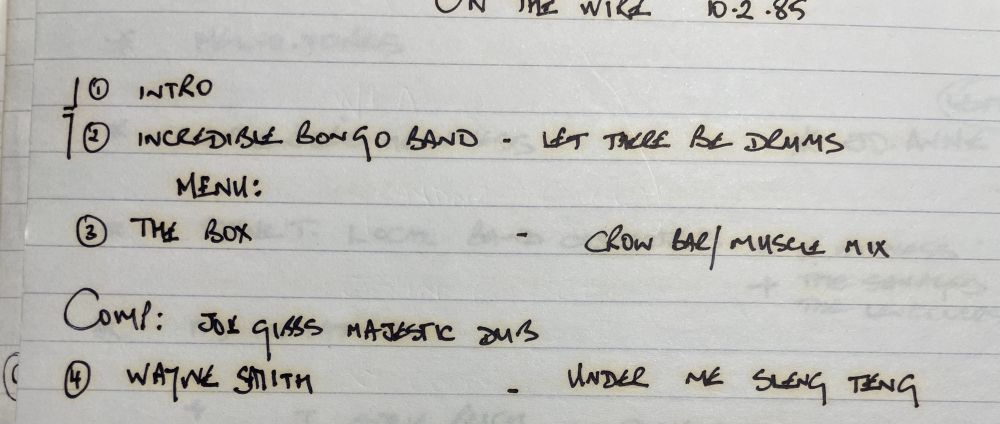 ON THE WIRE 10.2.85
① INTRO
② INCREDIBLE BONGO BAND - LET THERE BE DRUMS
MENU:
③ THE BOX - CROW BAR/MUSCLE MIX
COMP: JOE GIBBS MAJESTIC DUB
④ WAYNE SMITH - UNDER ME SLENG TENG